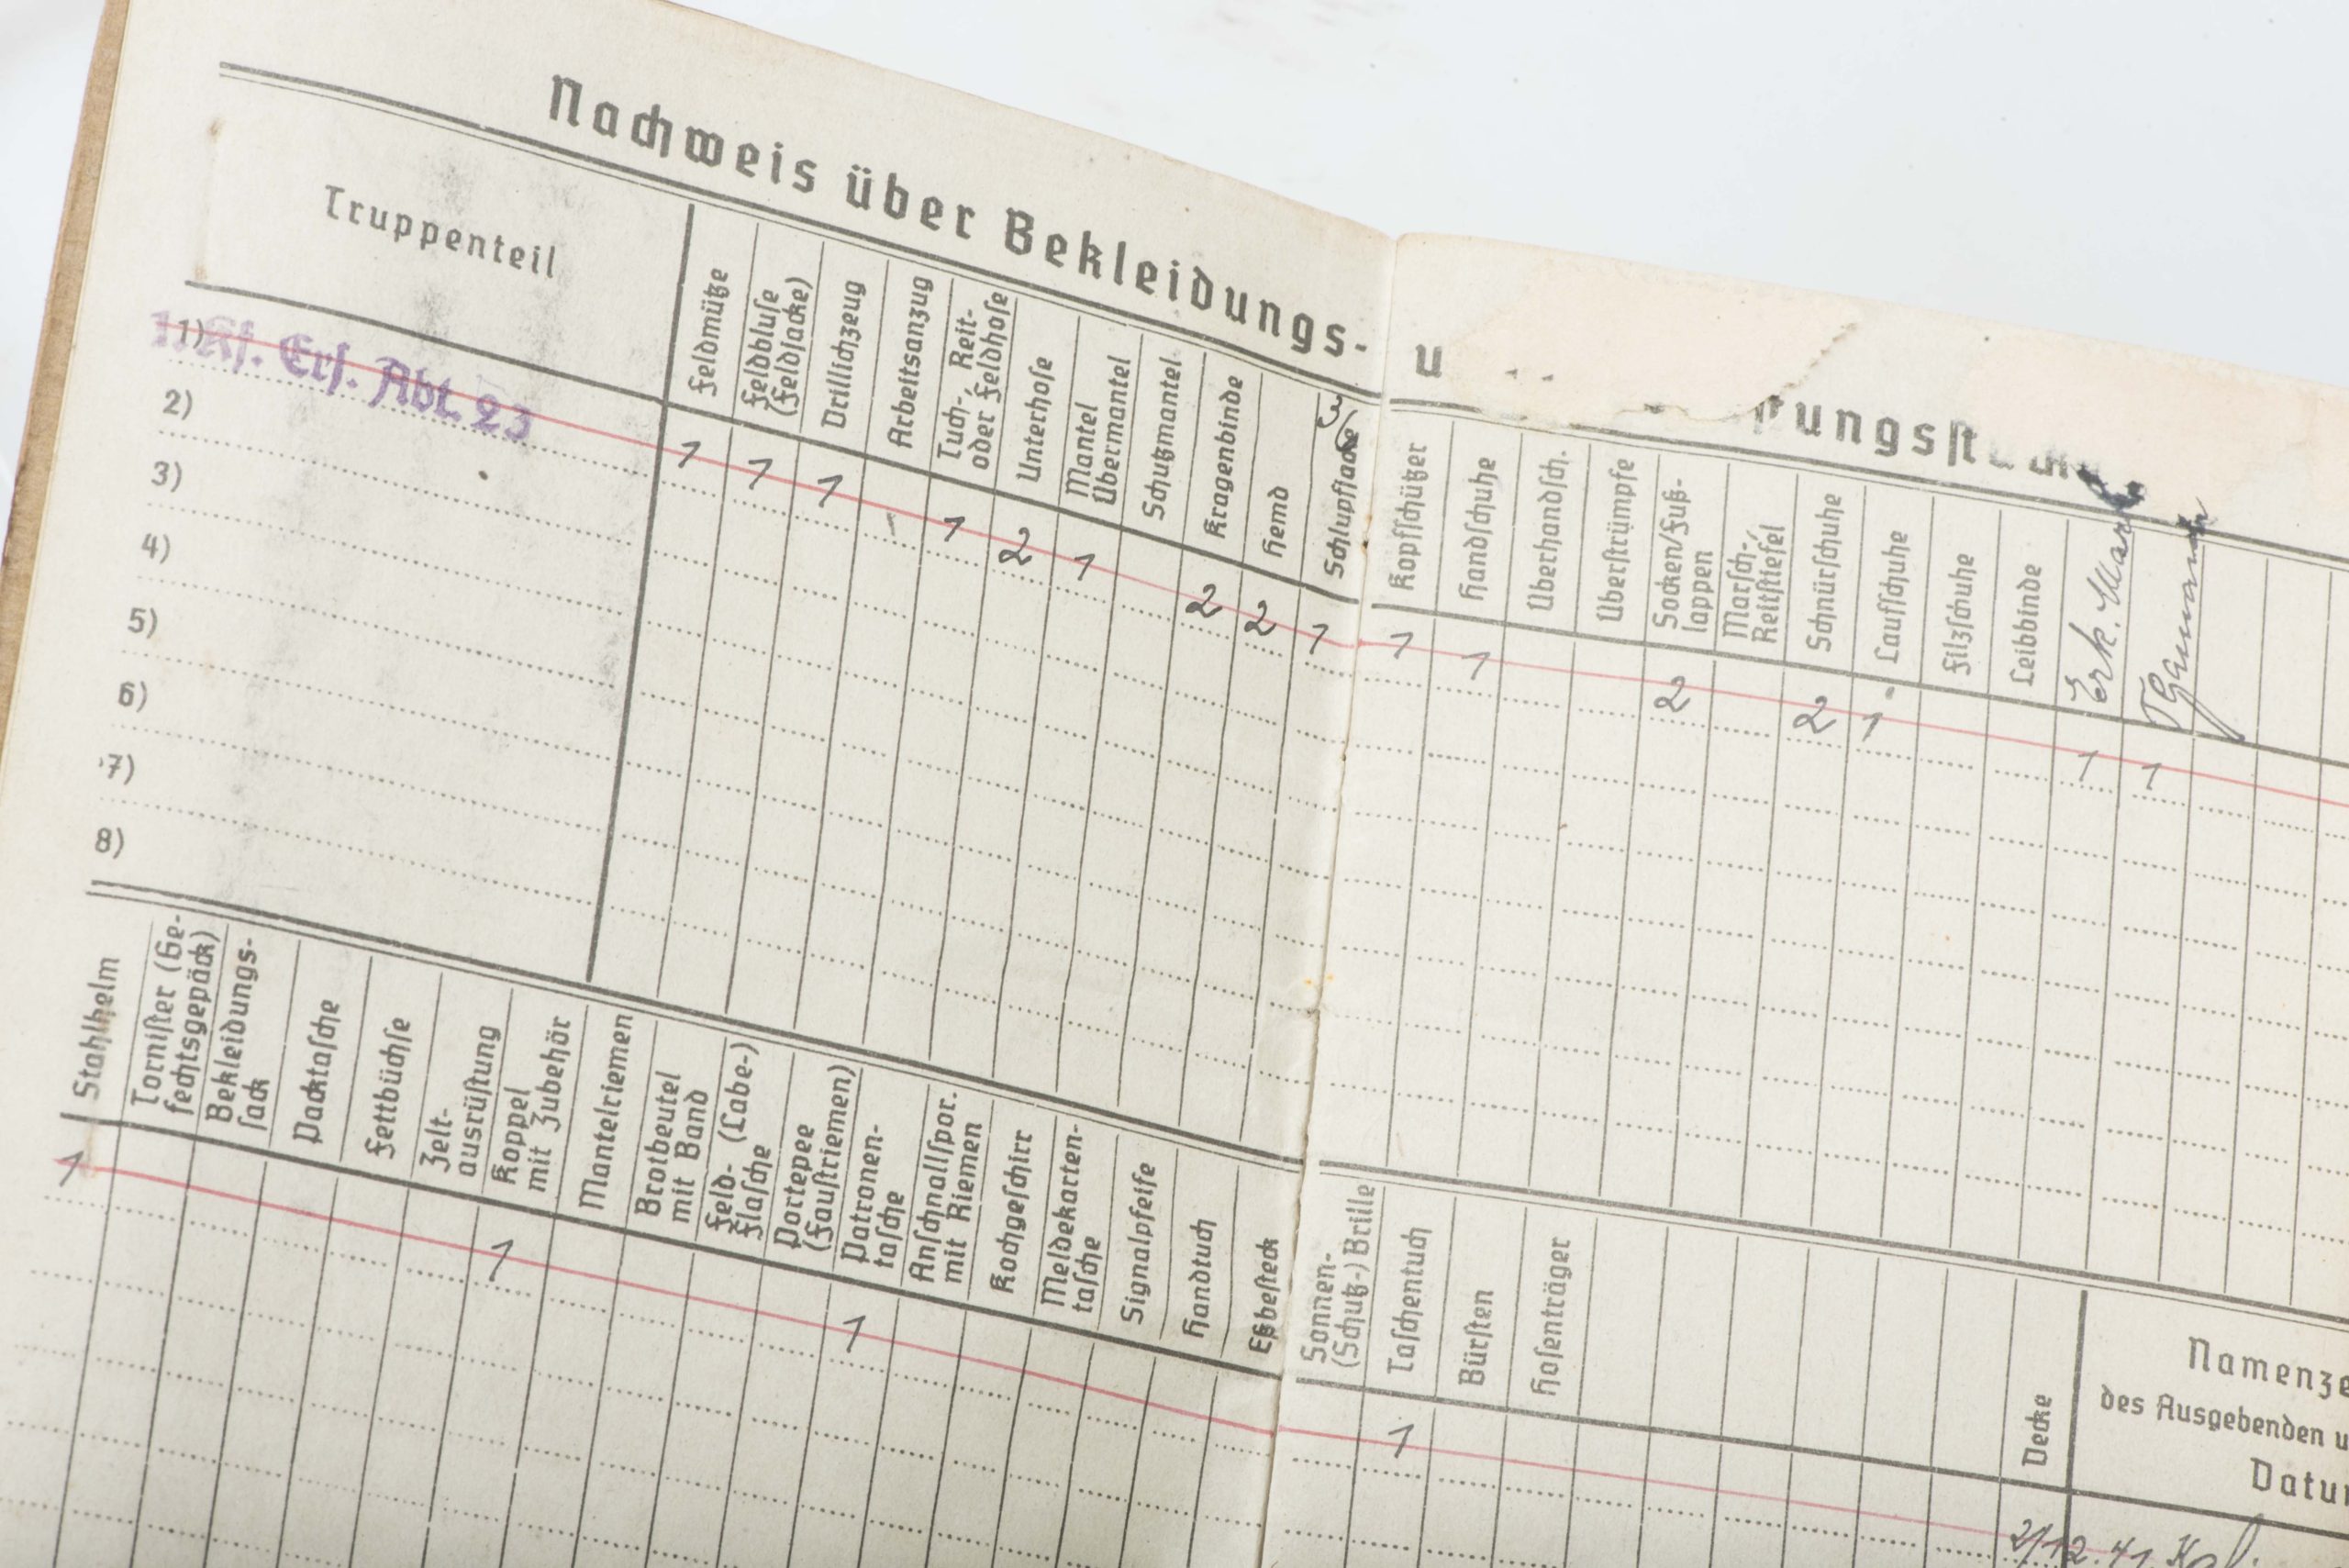 Nachweis über Bekleidungs- u
Truppenteil
Feldmütze
Feldbluse
(Feldjacke)
Drillichzeug
Arbeitsanzug
Tuch-, Reit-
oder Feldhose
Unterhose
Mantel
Übermantel
Schutzmantel
Kragenbinde
Hemd
Schlupfjacke
Kopfschützer
Handschuhe
Überhandsch.
Überstrümpfe
Socken/Fuß-
lappen
Marsch-,
Reitstiefel
Schnürschuhe
Laufschuhe
Filzschuhe
Leibbinde
Erk. Mark
1) Ers. Abt. 23 1 1 1 1 2 1 2 2 1 1 1 2 2 1 1 1
2)
3)
4)
5)
6)
7)
8)
Stahlhelm
Tornister (Ge-
fechtsgepäck)
Bekleidungs-
sack
Packtasche
Fettbüchse
Zelt-
ausrüstung
Koppel
mit Zubehör
Mantelriemen
Brotbeutel
mit Band
Feld- (Labe-)
Flasche
Portepee
(Faustriemen)
Patronen-
tasche
Anschnallspor.
mit Riemen
Kochgeschirr
Meldekarten-
tasche
Signalpfeife
Handtuch
Eßbesteck
Sonnen-
(Schutz-) Brille
Taschentuch
Bürsten
Hosenträger
Decke
Namenze
des Ausgebenden u
Datu
1 1 1 1
2/12.41.